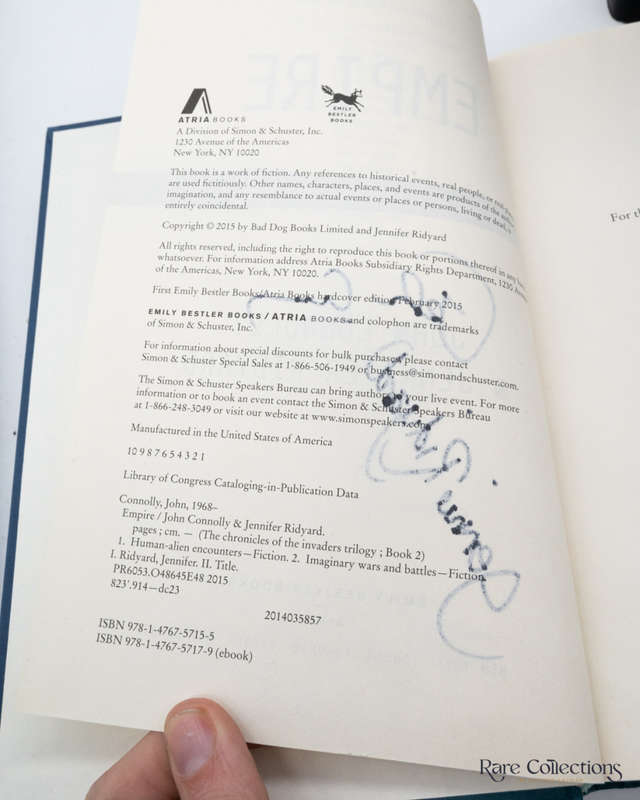 ATRIA BOOKS
EMILY
BESTLER
BOOKS
A Division of Simon & Schuster, Inc.
1230 Avenue of the Americas
New York, NY 10020
This book is a work of fiction. Any references to historical events, real people, or real places
are used fictitiously. Other names, characters, places, and events are products of the author's
imagination, and any resemblance to actual events or places or persons, living or dead, is
entirely coincidental.
Copyright © 2015 by Bad Dog Books Limited and Jennifer Ridyard
All rights reserved, including the right to reproduce this book or portions thereof in any form
whatsoever. For information address Atria Books Subsidiary Rights Department, 1230 Avenue
of the Americas, New York, NY 10020.
First Emily Bestler Books/Atria Books hardcover edition February 2015
EMILY BESTLER BOOKS / ATRIA BOOKS and colophon are trademarks
of Simon & Schuster, Inc.
For information about special discounts for bulk purchases, please contact
Simon & Schuster Special Sales at 1-866-506-1949 or business@simonandschuster.com.
The Simon & Schuster Speakers Bureau can bring authors to your live event. For more
information or to book an event contact the Simon & Schuster Speakers Bureau
at 1-866-248-3049 or visit our website at www.simonspeakers.com.
Manufactured in the United States of America
10 9 8 7 6 5 4 3 2 1
Library of Congress Cataloging-in-Publication Data
Connolly, John, 1968–
Empire / John Connolly & Jennifer Ridyard.
pages ; cm. — (The chronicles of the invaders trilogy ; Book 2)
1. Human-alien encounters—Fiction. 2. Imaginary wars and battles—Fiction.
I. Ridyard, Jennifer. II. Title.
PR6053.O48645E48 2015
823'.914—dc23
2014035857
ISBN 978-1-4767-5715-5
ISBN 978-1-4767-5717-9 (ebook)
For th
EMPIRE
Rare Collections